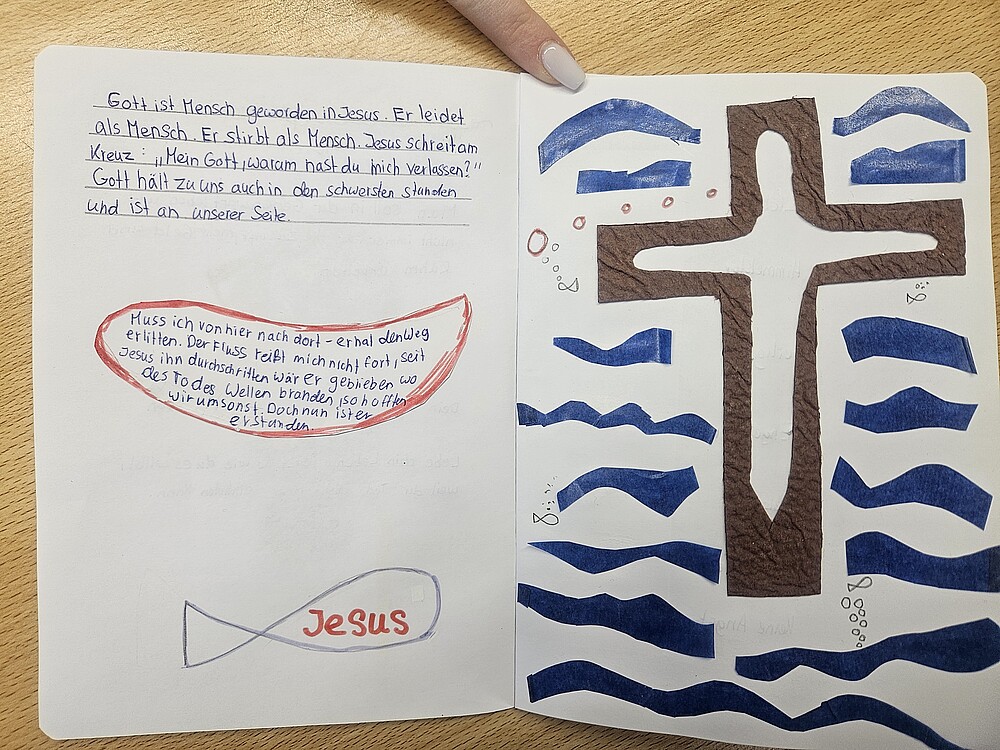 Gott ist Mensch geworden in Jesus. Er leidet
als Mensch. Er stirbt als Mensch. Jesus schreit am
Kreuz: „Mein Gott, warum hast du mich verlassen?"
Gott hält zu uns auch in den schwersten stunden
und ist an unserer Seite.
Muss ich von hier nach dort - er hal den Weg
erlitten. Der Fluss reißt mich nicht fort, seit
Jesus ihn durchschritten wär er geblieben wo
des Todes Wellen branden, so hofften
wir umsonst. Doch nun ist er
erstanden.
Jesus